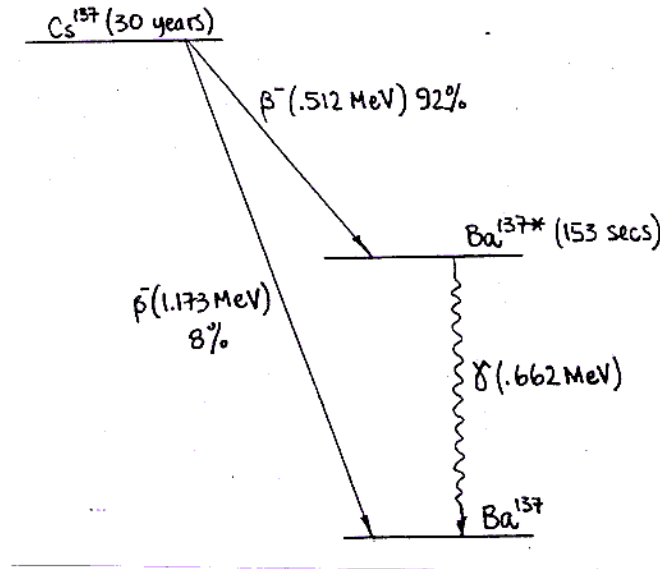 Cs¹³⁷ (30 years)
β⁻ (.512 MeV) 92%
Ba¹³⁷* (153 secs)
β⁻ (1.173 MeV)
8%
γ (.662 MeV)
Ba¹³⁷